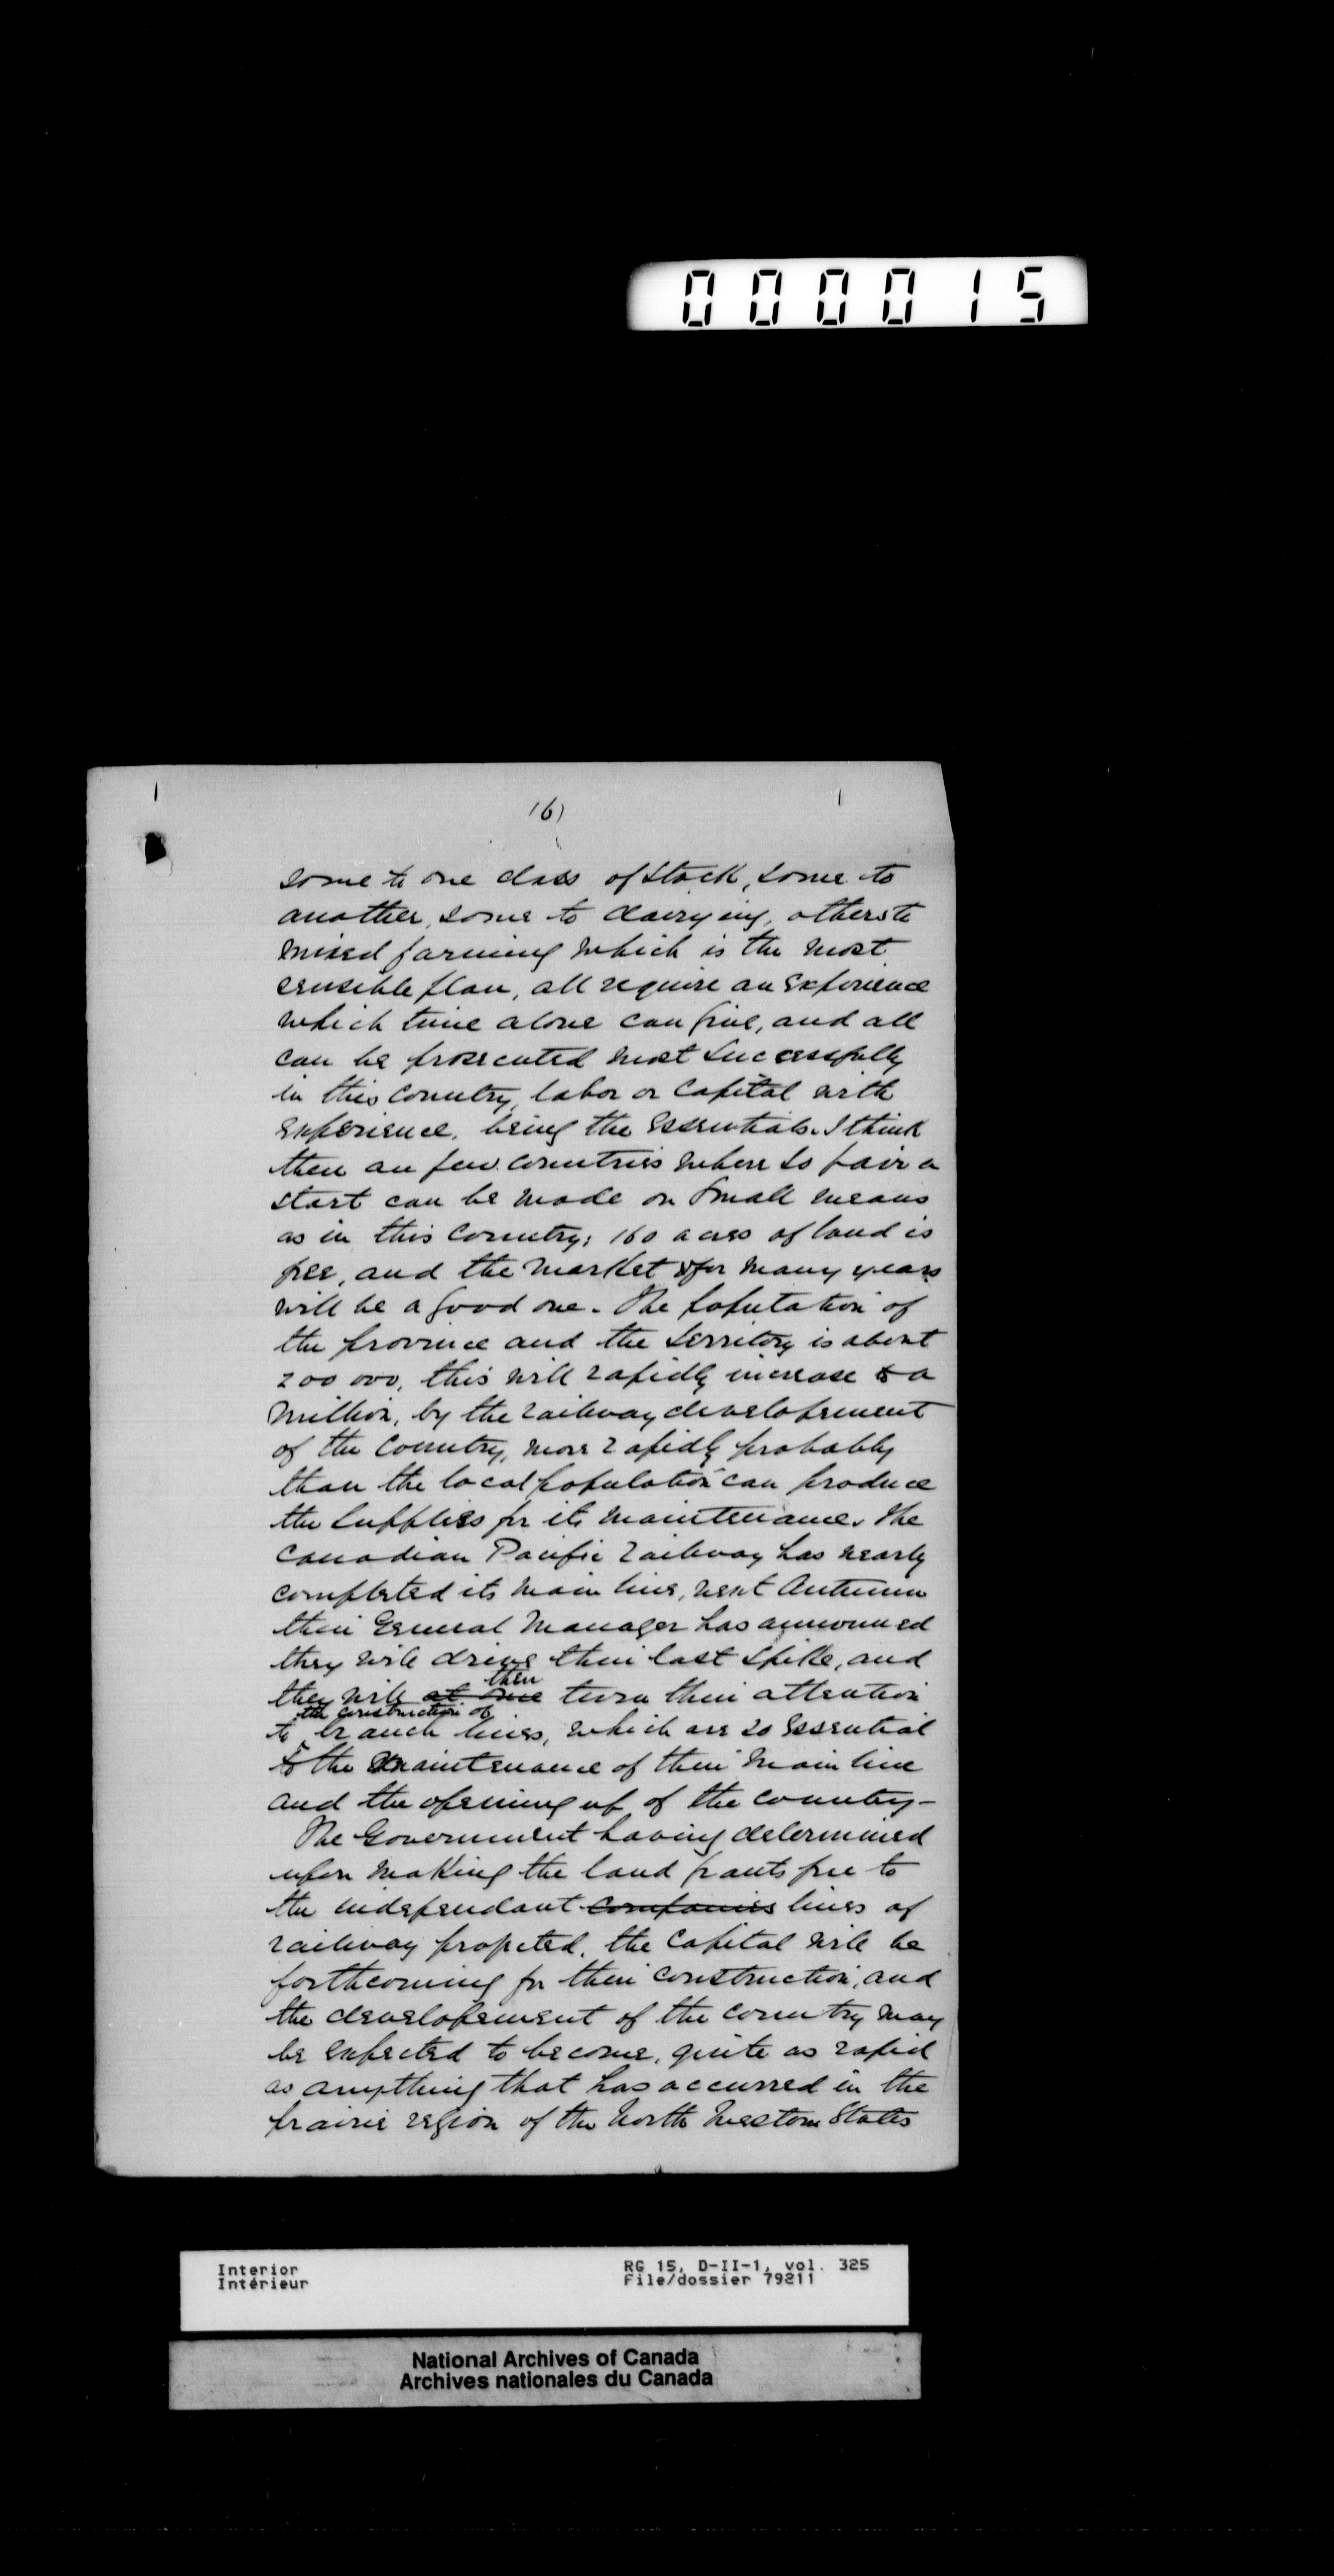 000015
(6)
some to one class of stock, some to
another, some to dairying, others to
mixed farming which is the most
sensible plan, all require an experience
which time alone can give, and all
can be prosecuted most successfully
in this country, labor or capital with
experience, being the essentials. I think
there are few countries where so fair a
start can be made on small means
as in this country; 160 acres of land is
free, and the market for many years
will be a good one. The population of
the province and the territory is about
200 000, this will rapidly increase to a
million, by the railway developement
of the country, more rapidly probably
than the local population can produce
the supplies for its maintenance. The
Canadian Pacific Railway has nearly
completed its main line, next Autumn
their General Manager has announced
they will drive their last spike, and
then
they will at once turn their attention
the construction of
to branch lines, which are so essential
to the maintenance of their main line
and the opening up of the country —
The Government having determined
upon making the land grants free to
the independant companies lines of
railway projected, the capital will be
forthcoming for their construction, and
the developement of the country may
be expected to become, quite as rapid
as anything that has occurred in the
prairie region of the North Western States
Interior
Intérieur
RG 15, D-II-1, vol. 325
File/dossier 79211
National Archives of Canada
Archives nationales du Canada